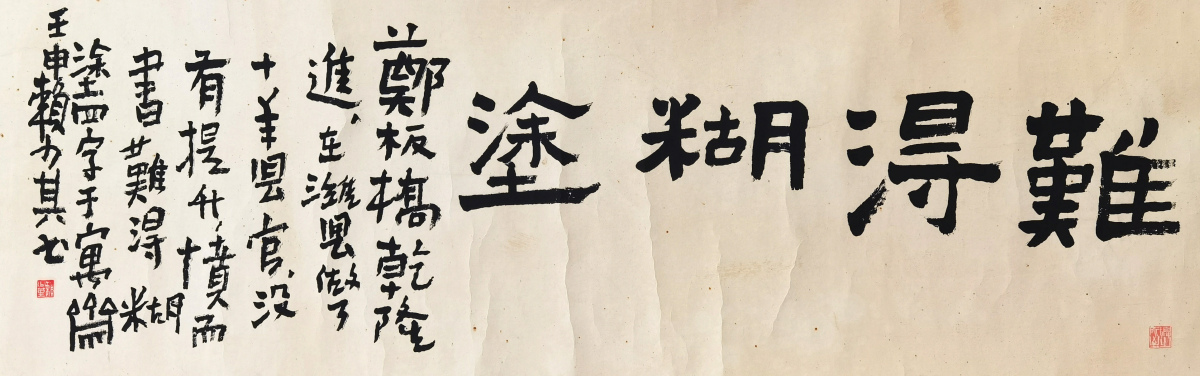 難得糊塗
鄭板橋乾隆
進、在濰県做了
十年県官、没
有提升、憤而
書難得糊
塗四字于寓齋
壬申賴少其书